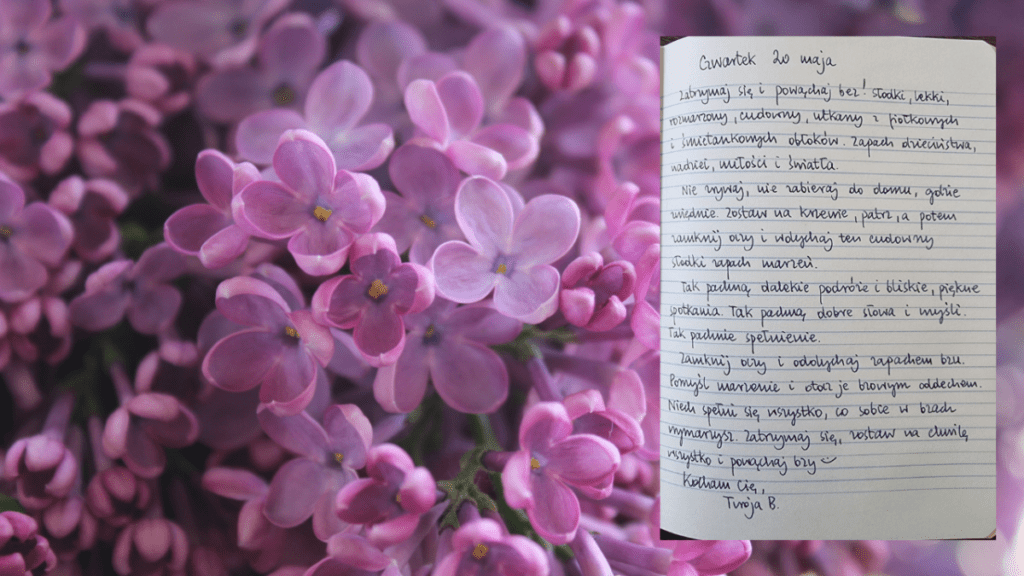 Czwartek 20 maja
Zatrzymaj się i powąchaj bez! Słodki, lekki,
rozmarzony, cudowny, utkany z fiołkowych
i śmietankowych obłoków. Zapach dzieciństwa,
nadziei, miłości i światła.
Nie zrywaj, nie zabieraj do domu, gdzie
więdnie. Zostaw na krzewie, patrz, a potem
zamknij oczy i wdychaj ten cudowny
słodki zapach marzeń.
Tak pachną dalekie podróże i bliskie, piękne
spotkania. Tak pachną dobre słowa i myśli.
Tak pachnie spełnienie.
Zamknij oczy i oddychaj zapachem bzu.
Pomyśl marzenie i otocz je bzowym oddechem.
Niech spełni się wszystko, co sobie w bzach
wymarzysz. Zatrzymaj się, zostaw na chwilę
wszystko i powąchaj bzy
Kocham Cię,
Twoja B.